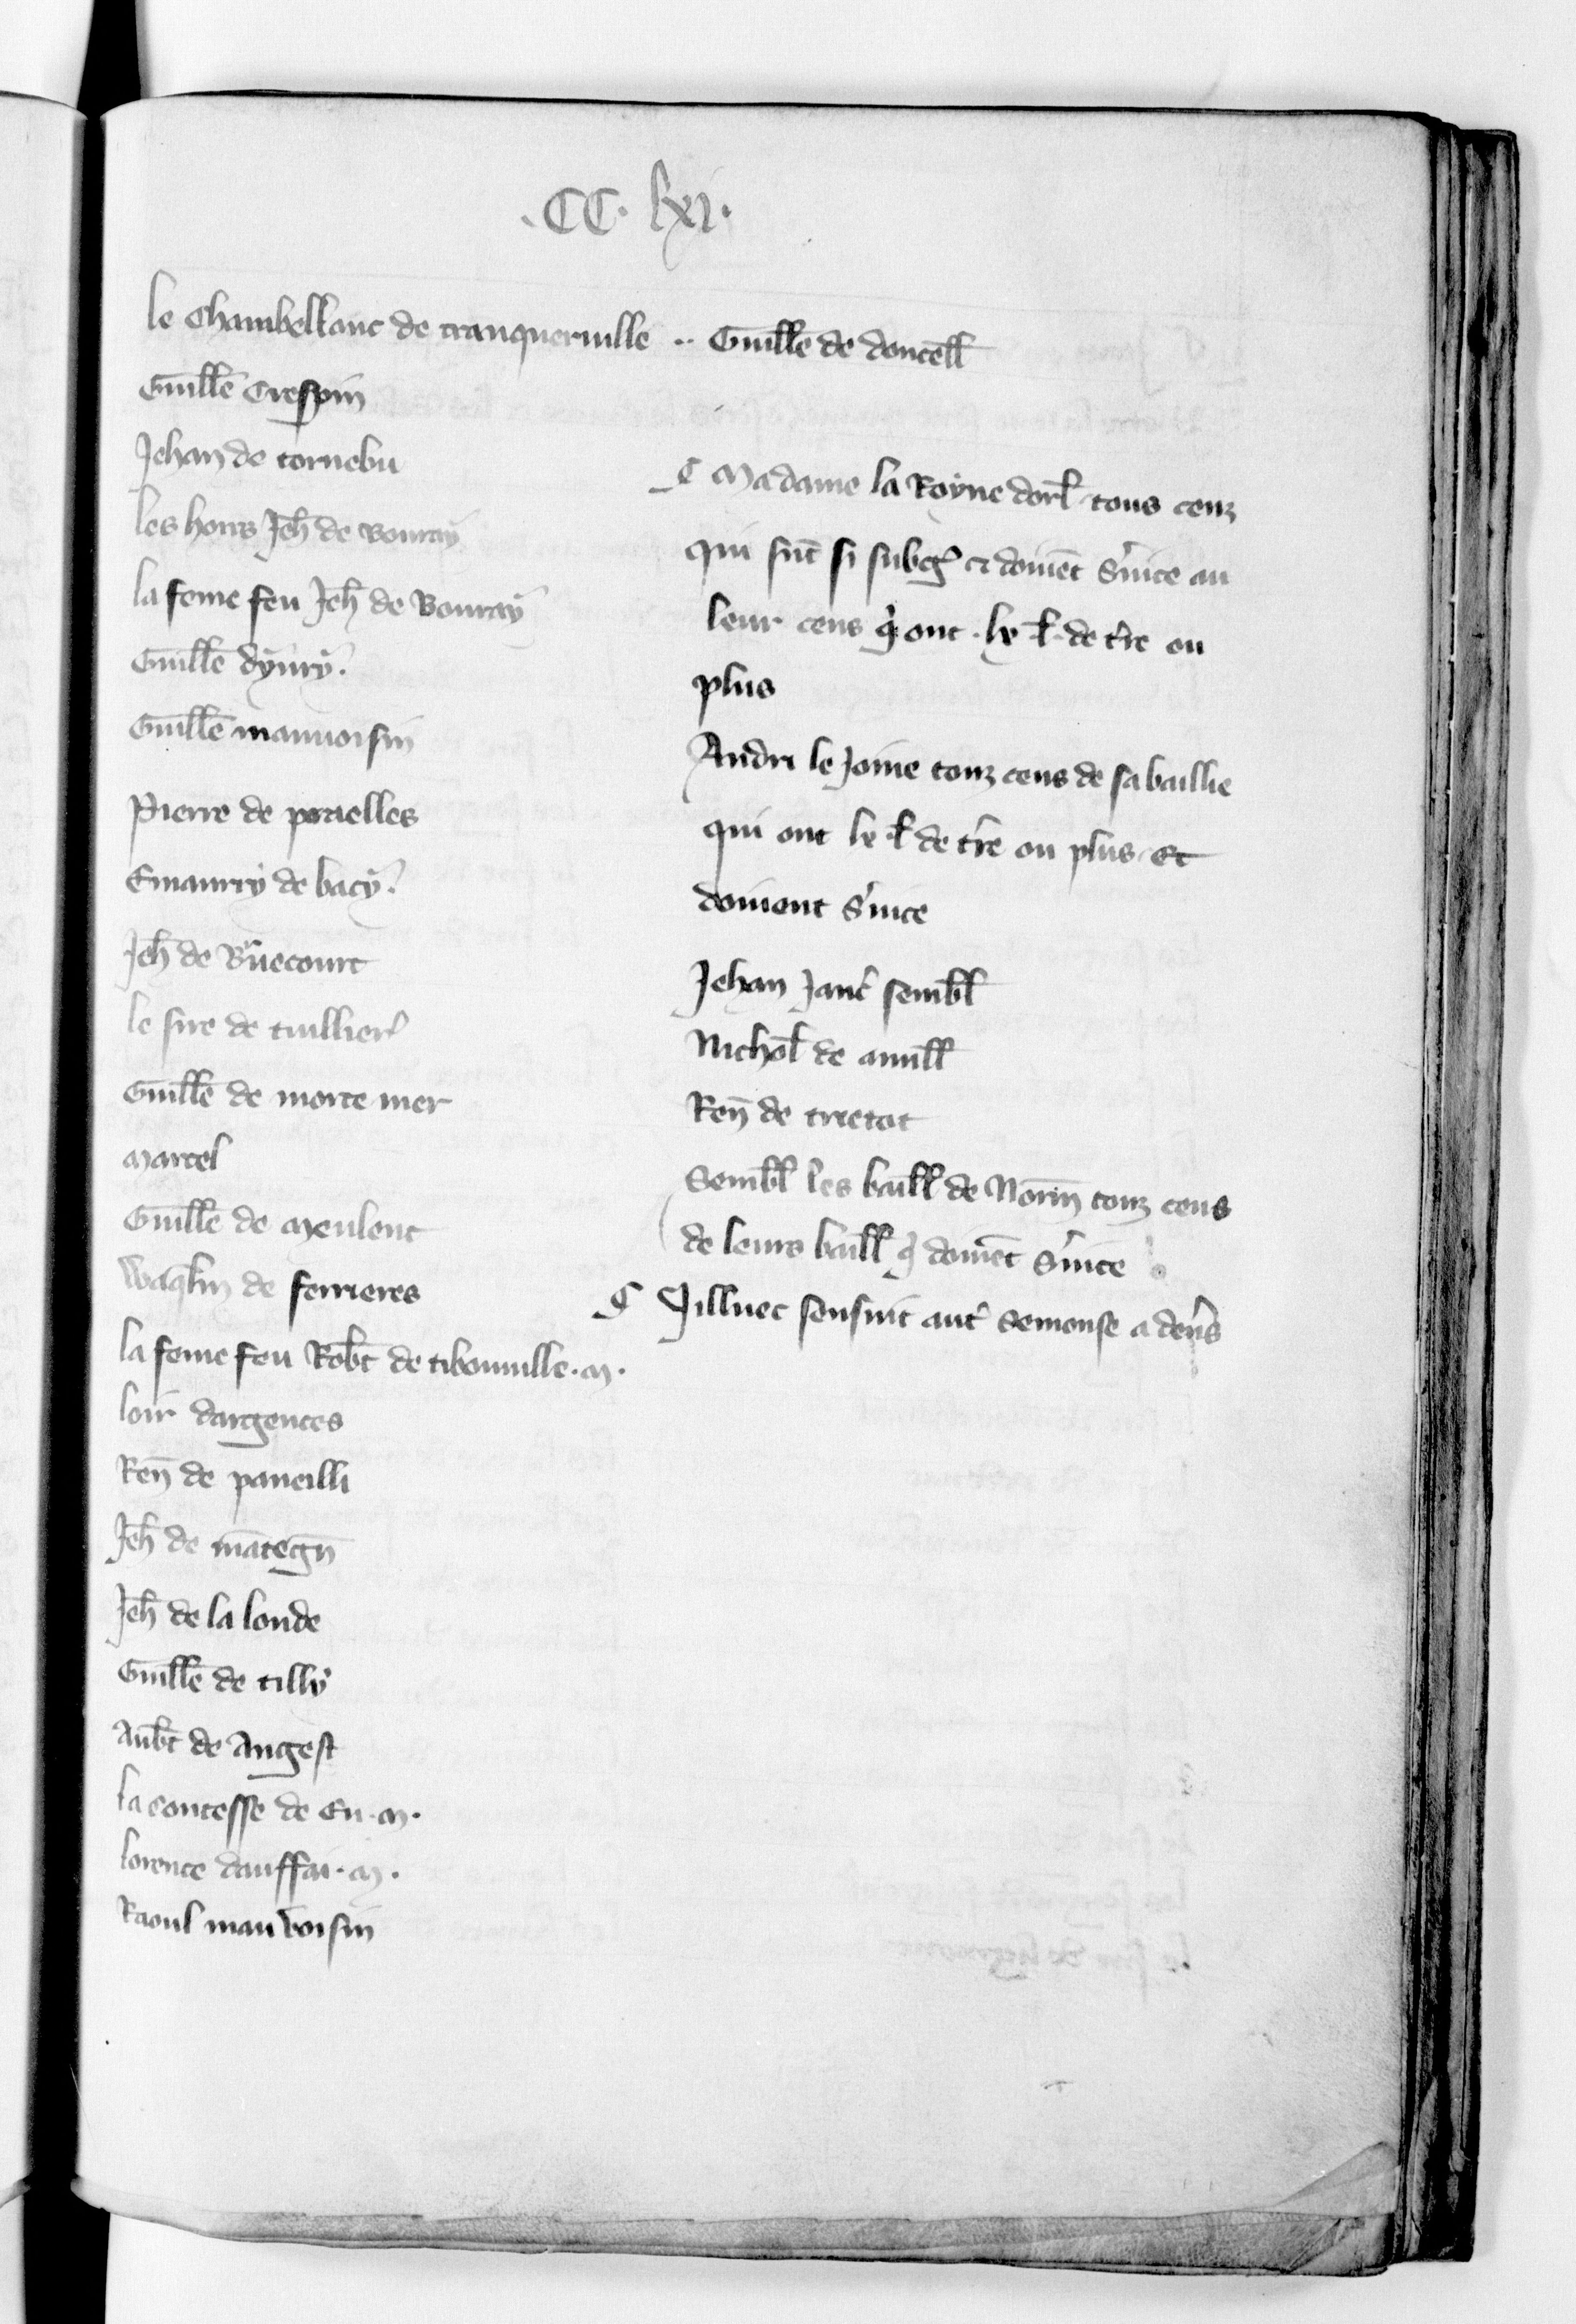 .CC. lxi.
le Chambellanc de tranquerville
Guille Crespin
Jehan de tornebu
les hoirs Jeh de Bouray
la feme feu Jeh de Bouray
Guille dyvry.
Guille mauvoisin
Pierre de praelles
Emaurry de bacy.
Jeh de Buecourt
le sire de tuillier
Guille de morte mer
Marcel
Guille de Meulent
Waqlin de ferrieres
la feme feu Robt de tibouville. M.
loir dargences
Ren de paveilli
Jeh de mategn
Jeh de la londe
Guille de tilly
Aubt de Angest
la contesse de Eu. M.
lorence dauffai. M.
Raoul mau voisin
.. Guille de doucell
¶ Madame la Royne dorl tous ceuz
qui sunt si subg et doivet svice au
leur ceus q ont . lx . l. de tre ou
plus
Andri le Joine touz ceus de sa baillie
qui ont lx . l de tre ou plus. Et
doivent svice
Jehan Jant sembl
Nichol de auvill
Ren de trietot
Sembl les baill de Norm touz ceus
de leurs baill q doivet svice
¶ Jilluec sensuit aut Semonse a devs